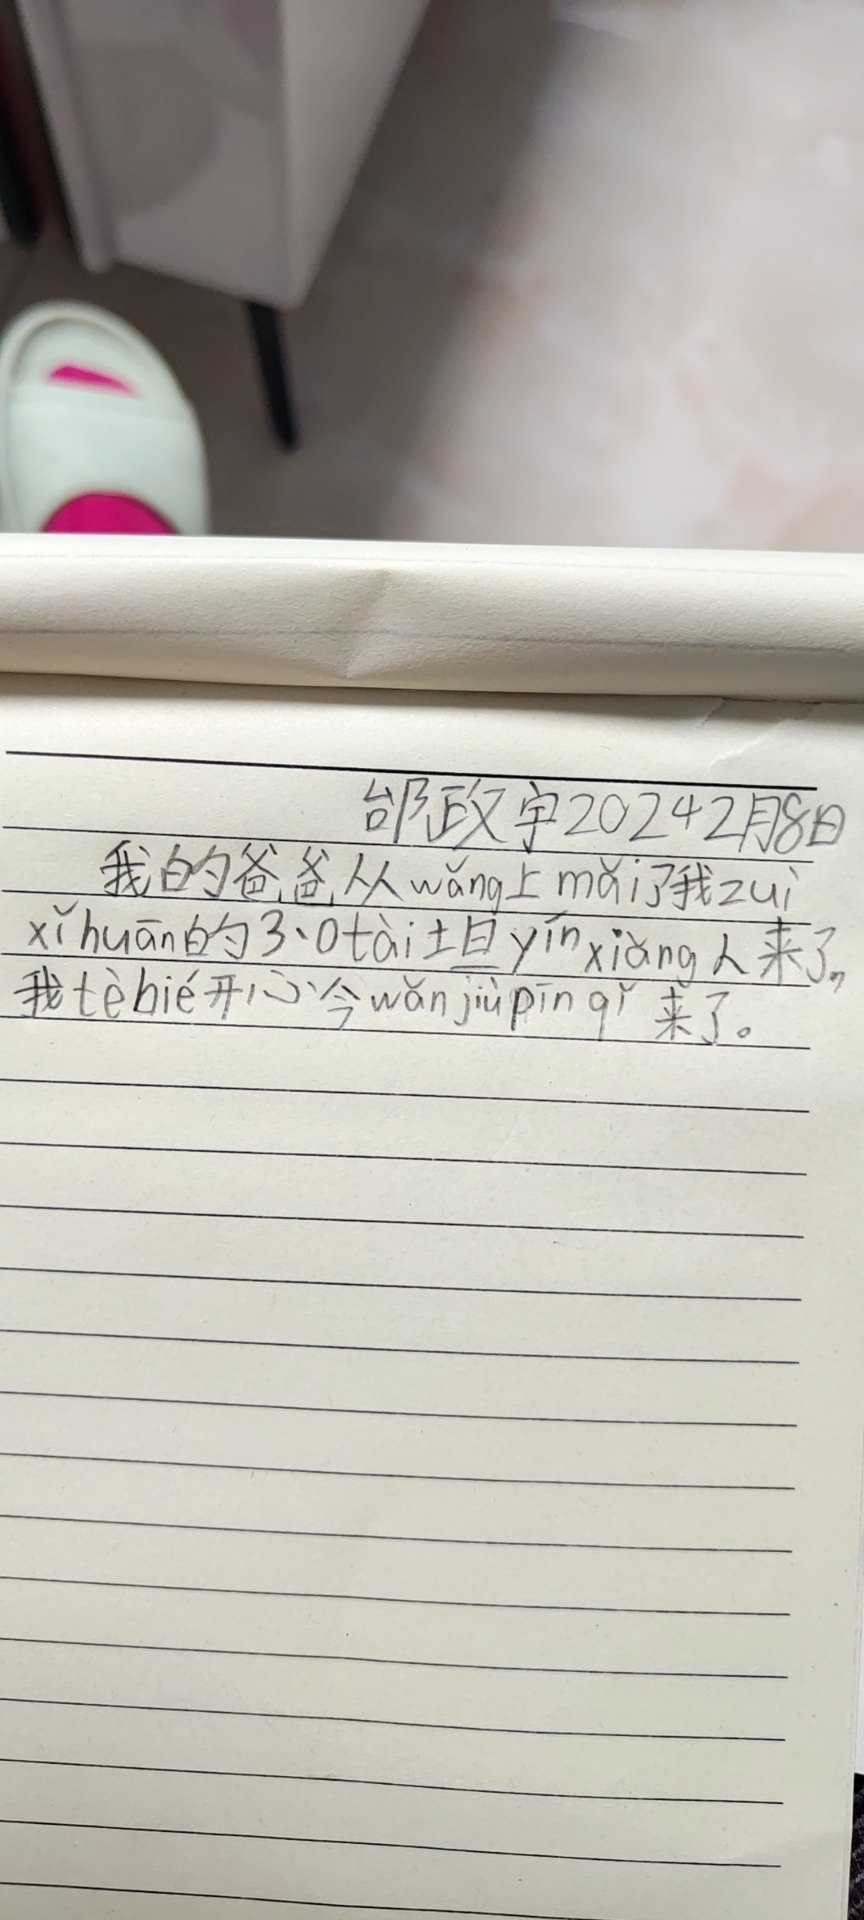 邰政宇20242月8日
我的爸爸从wǎng上mǎi了我zuì
xǐhuān的3、0tài土旦yīnxiǎng人来了,
我tèbié开心今wǎnjiùpīnqǐ来了。